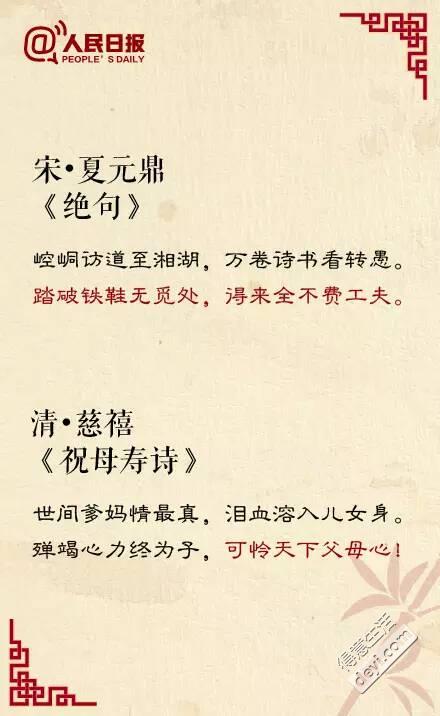 @人民日报
PEOPLE'S DAILY
宋·夏元鼎
《绝句》
崆峒访道至湘湖，万卷诗书看转愚。
踏破铁鞋无觅处，得来全不费工夫。
清·慈禧
《祝母寿诗》
世间爹妈情最真，泪血溶入儿女身。
殚竭心力终为子，可怜天下父母心！
得意生活
deyi.com